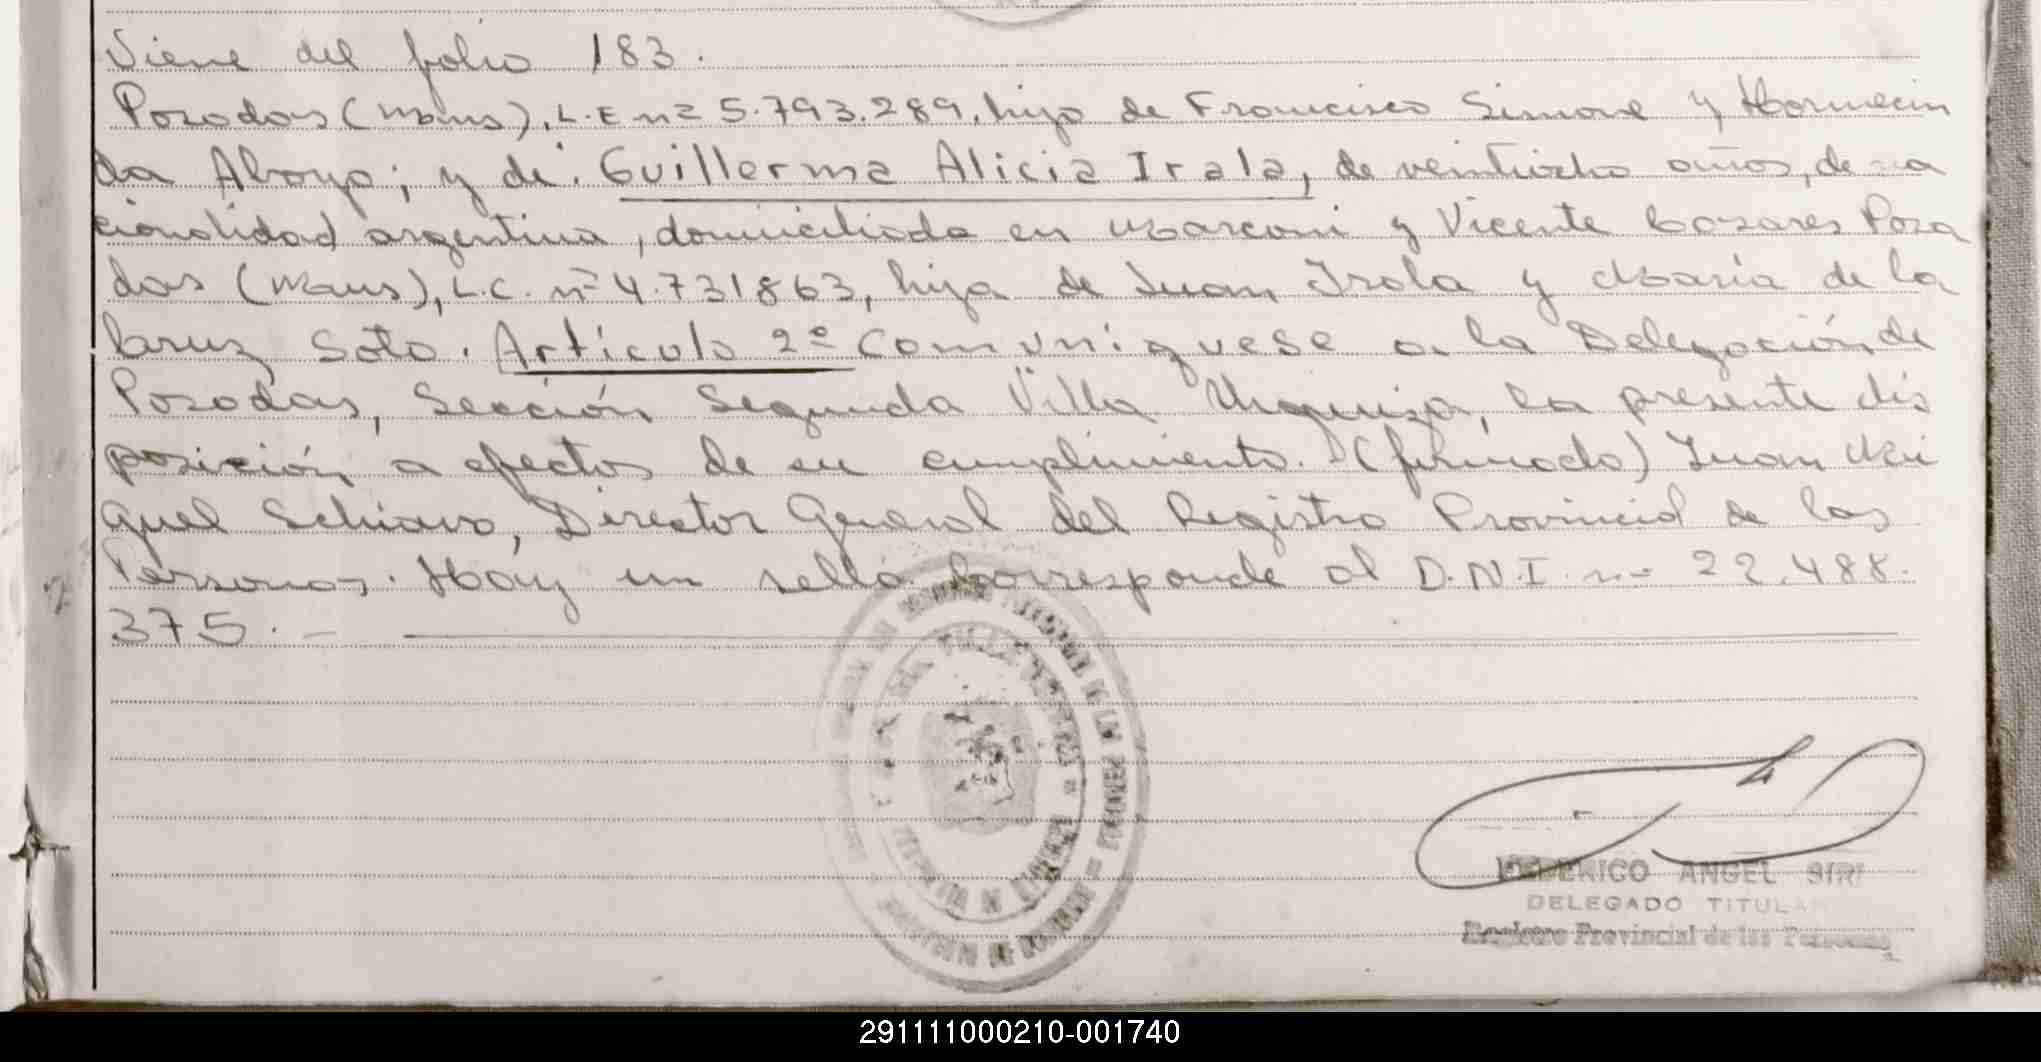 Viene del folio 183.
Posadas (Mnes), L.E nº 5.793.289, hijo de Francisco Simone y Hormecin
da Aboyo; y de: Guillerma Alicia Irala, de veintiocho años, de na
cionalidad argentina, domiciliada en Marconi y Vicente Cazares Posa
das (Mnes), L.C. nº 4.731863, hija de Juan Irala y María de la
Cruz Soto. Artículo 2º Comuníquese a la Delegación de
Posadas, Sección Segunda Villa Urquiza, la presente dis
posición a efectos de su cumplimiento. (firmado) Juan Mi
guel Schiavo, Director General del Registro Provincial de las
Personas. Hay un sello. Corresponde al D.N.I. nº 22.488.
375.-
FEDERICO ANGEL SIRI
DELEGADO TITULAR
Registro Provincial de las Personas
291111000210-001740